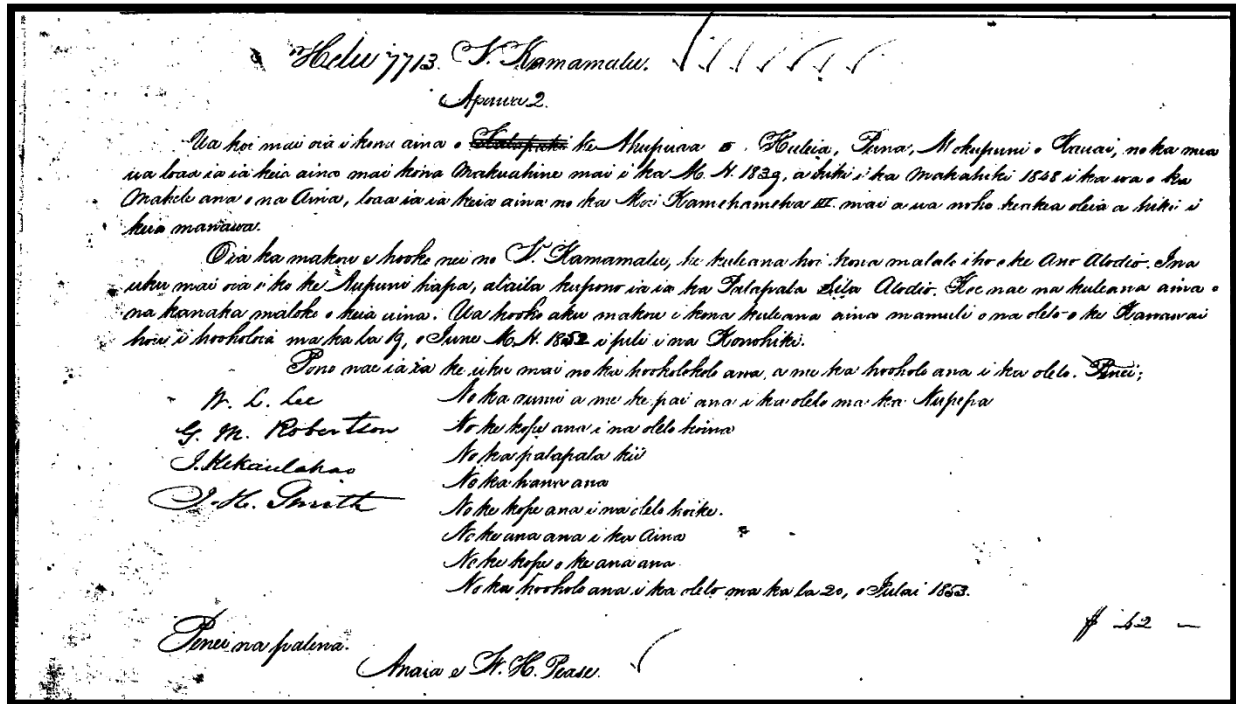 Helu 7713. V. Kamamalu.
Apana 2.
Ua koi mai oia i kona aina o Kalapaki ke Ahupuaa o Huleia, Puna, Mokupuni o Kauai, no ka mea
ua loaa ia ia keia aina mai kona Makuahine mai i ka M. H. 1839, a hiki i ka Makahiki 1848 i ka wa o ka
Mahele ana o na Aina, loaa ia ia keia aina no ka Moi Kamehameha III. mai a ua noho keakea oleia a hiki i
keia manawa.
Oia ka makou e hooko nei no V. Kamamalu, he kuleana hoi kona malalo iho o ke Ano Alodio. Ina
uku mai oia i ko ke Aupuni hapa, alaila kupono ia ia ka Palapala Sila Alodio. Koe nae na kuleana aina o
na kanaka maloko o keia aina. Ua hooko aku makou i kona kuleana aina mamuli o na olelo o ke Kanawai
hou i hooholoia ma ka la 19, o June M. H. 1852 i pili i na Konohiki.
Pono nae ia ia ke uku mai no ka hookolokolo ana, a me ka hooholo ana i ka olelo. Penei;
W. L. Lee
G. M. Robertson
J. Kekaulahao
J. H. Smith
No ka a me ke pai ana i ka olelo ma ka Nupepa
No ke kope ana i na olelo koina
No ka palapala kii
No ka hana ana
No ke kope ana i na olelo hoike.
No ke ana ana i ka Aina
No ke kope o ke ana ana
No ka hooholo ana i ka olelo ma ka la 20, o Iulai 1853.
$
Penei na palena.
Anaia e W. H. Pease.